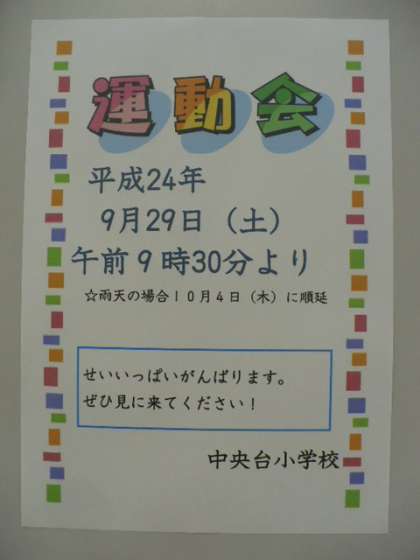 運動会
平成24年
9月29日（土）
午前９時30分より
☆雨天の場合１０月４日（木）に順延
せいいっぱいがんばります。
ぜひ見に来てください！
中央台小学校